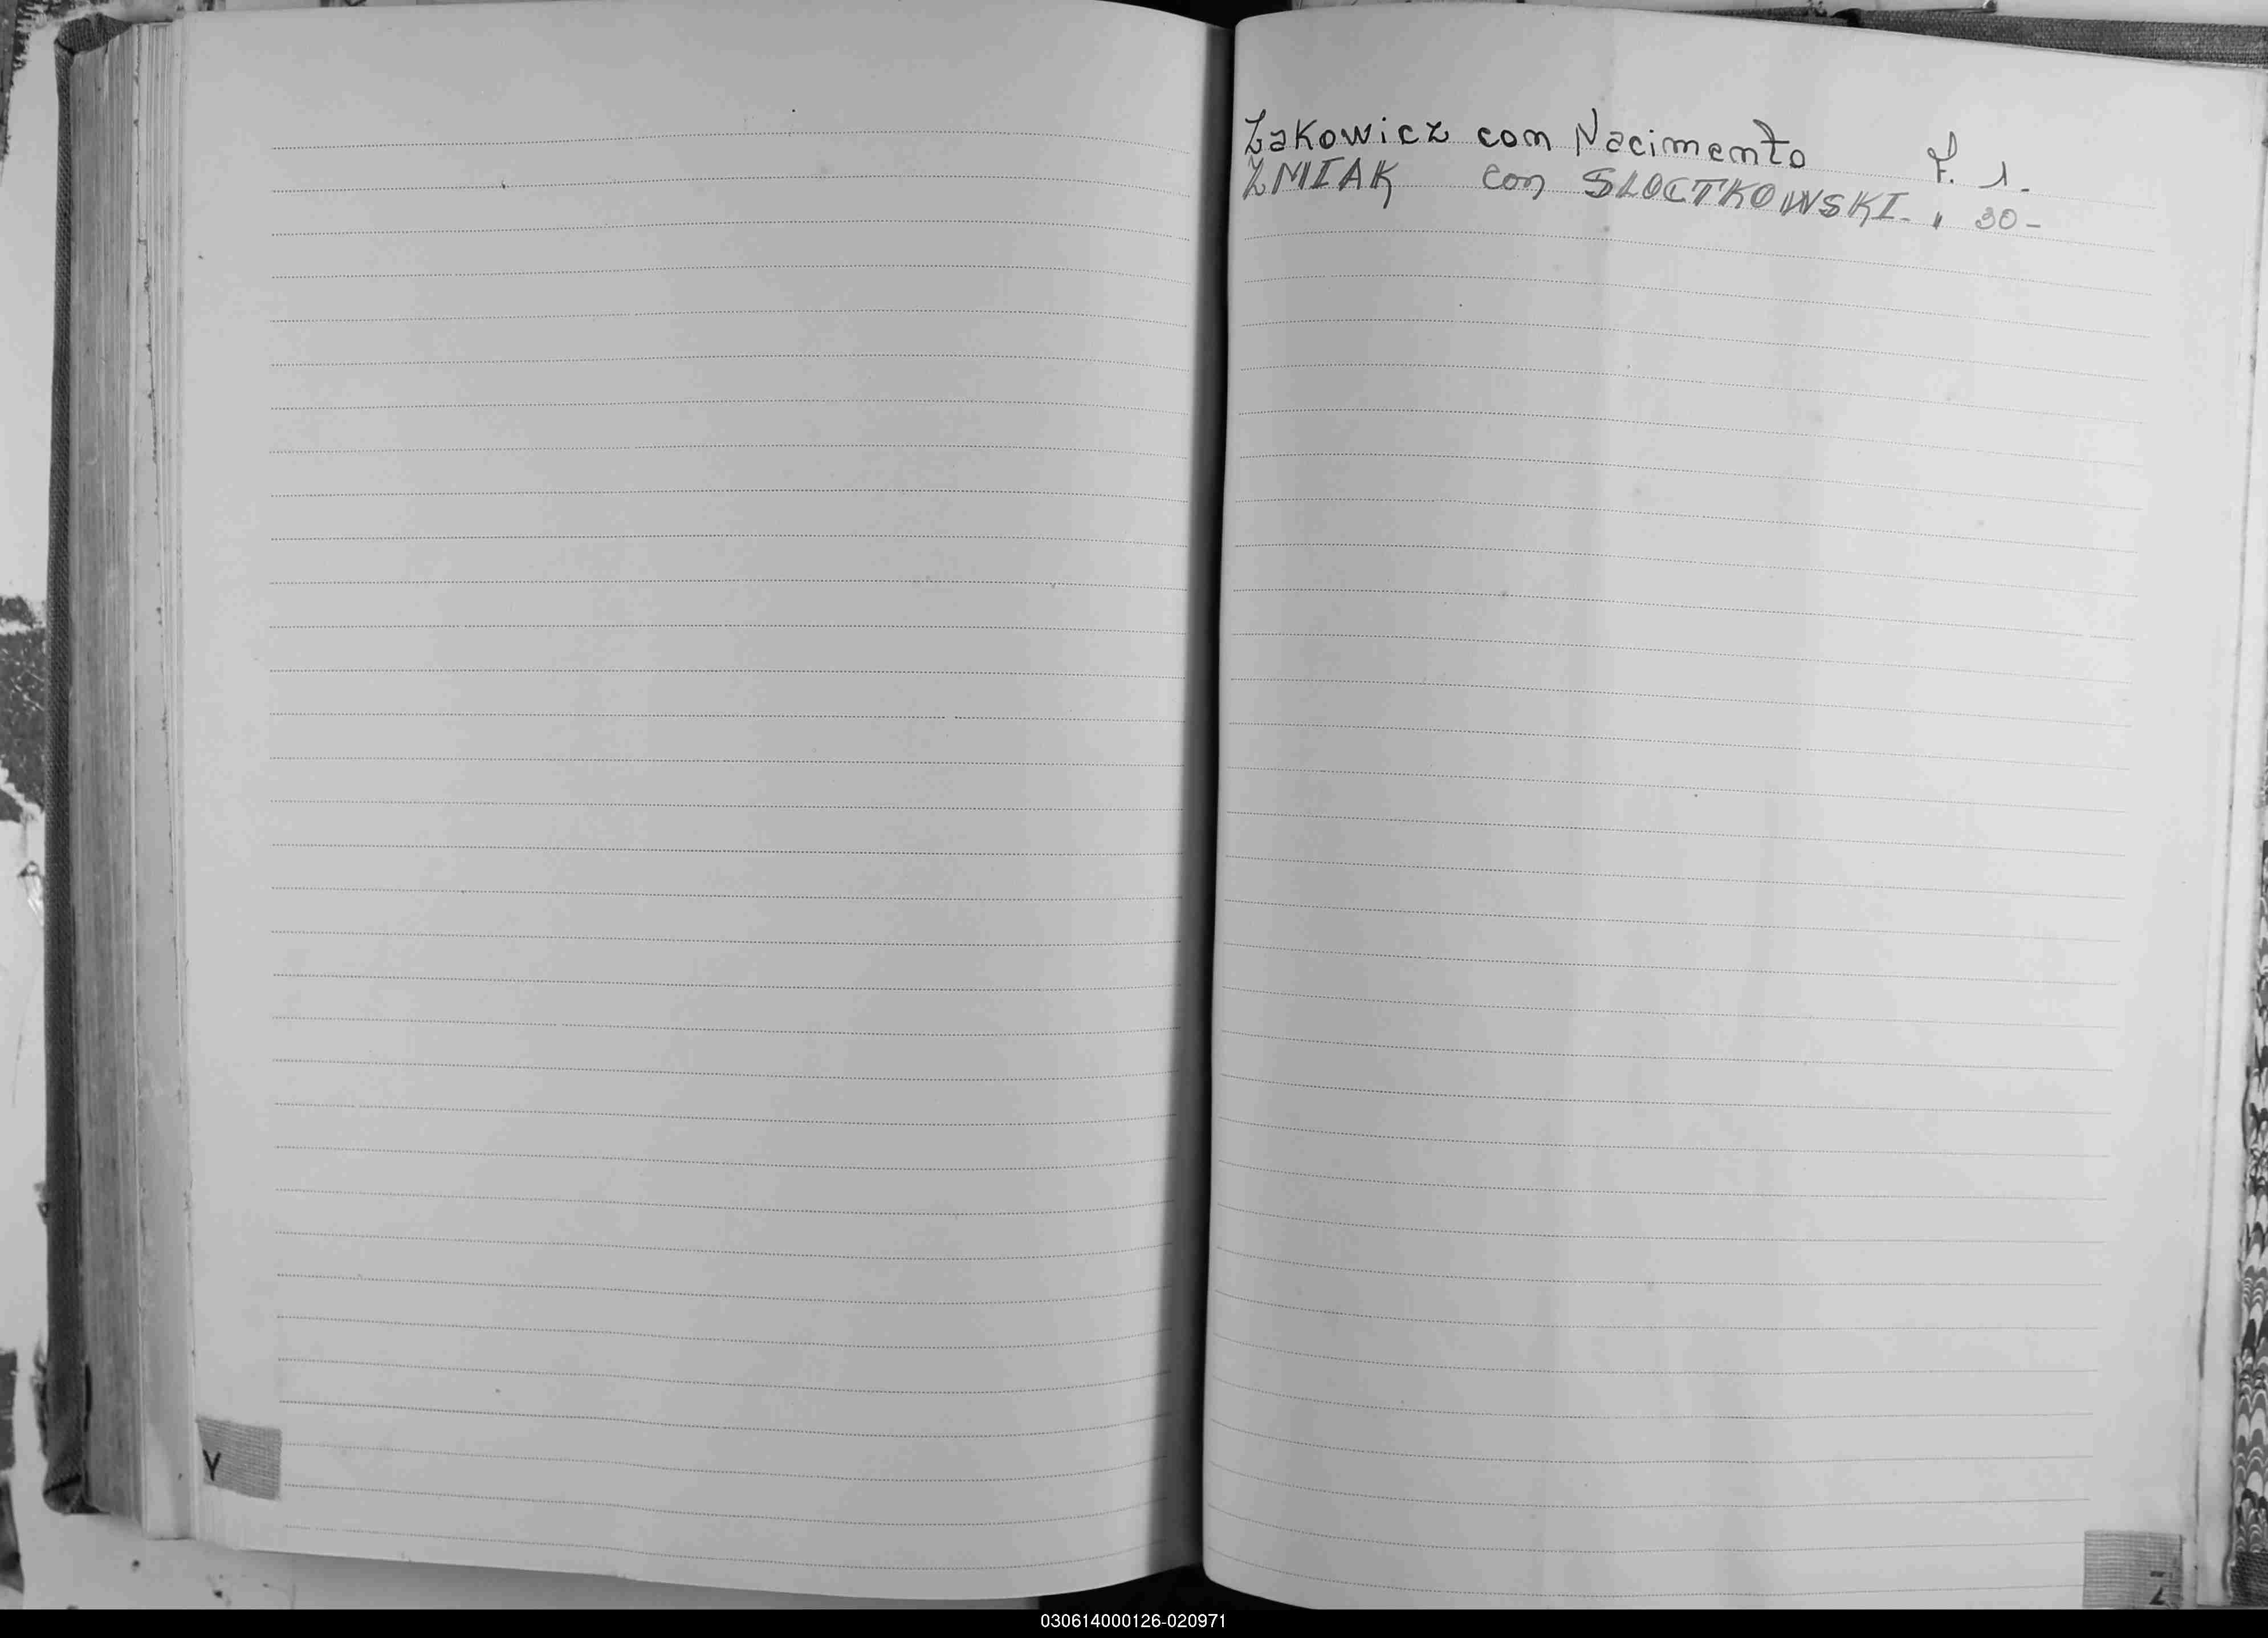 Zakowicz com Nacimento f. 1.
ZMIAK con SLOCTKOWSKI. " 30-
Y
Z
030614000126-020971